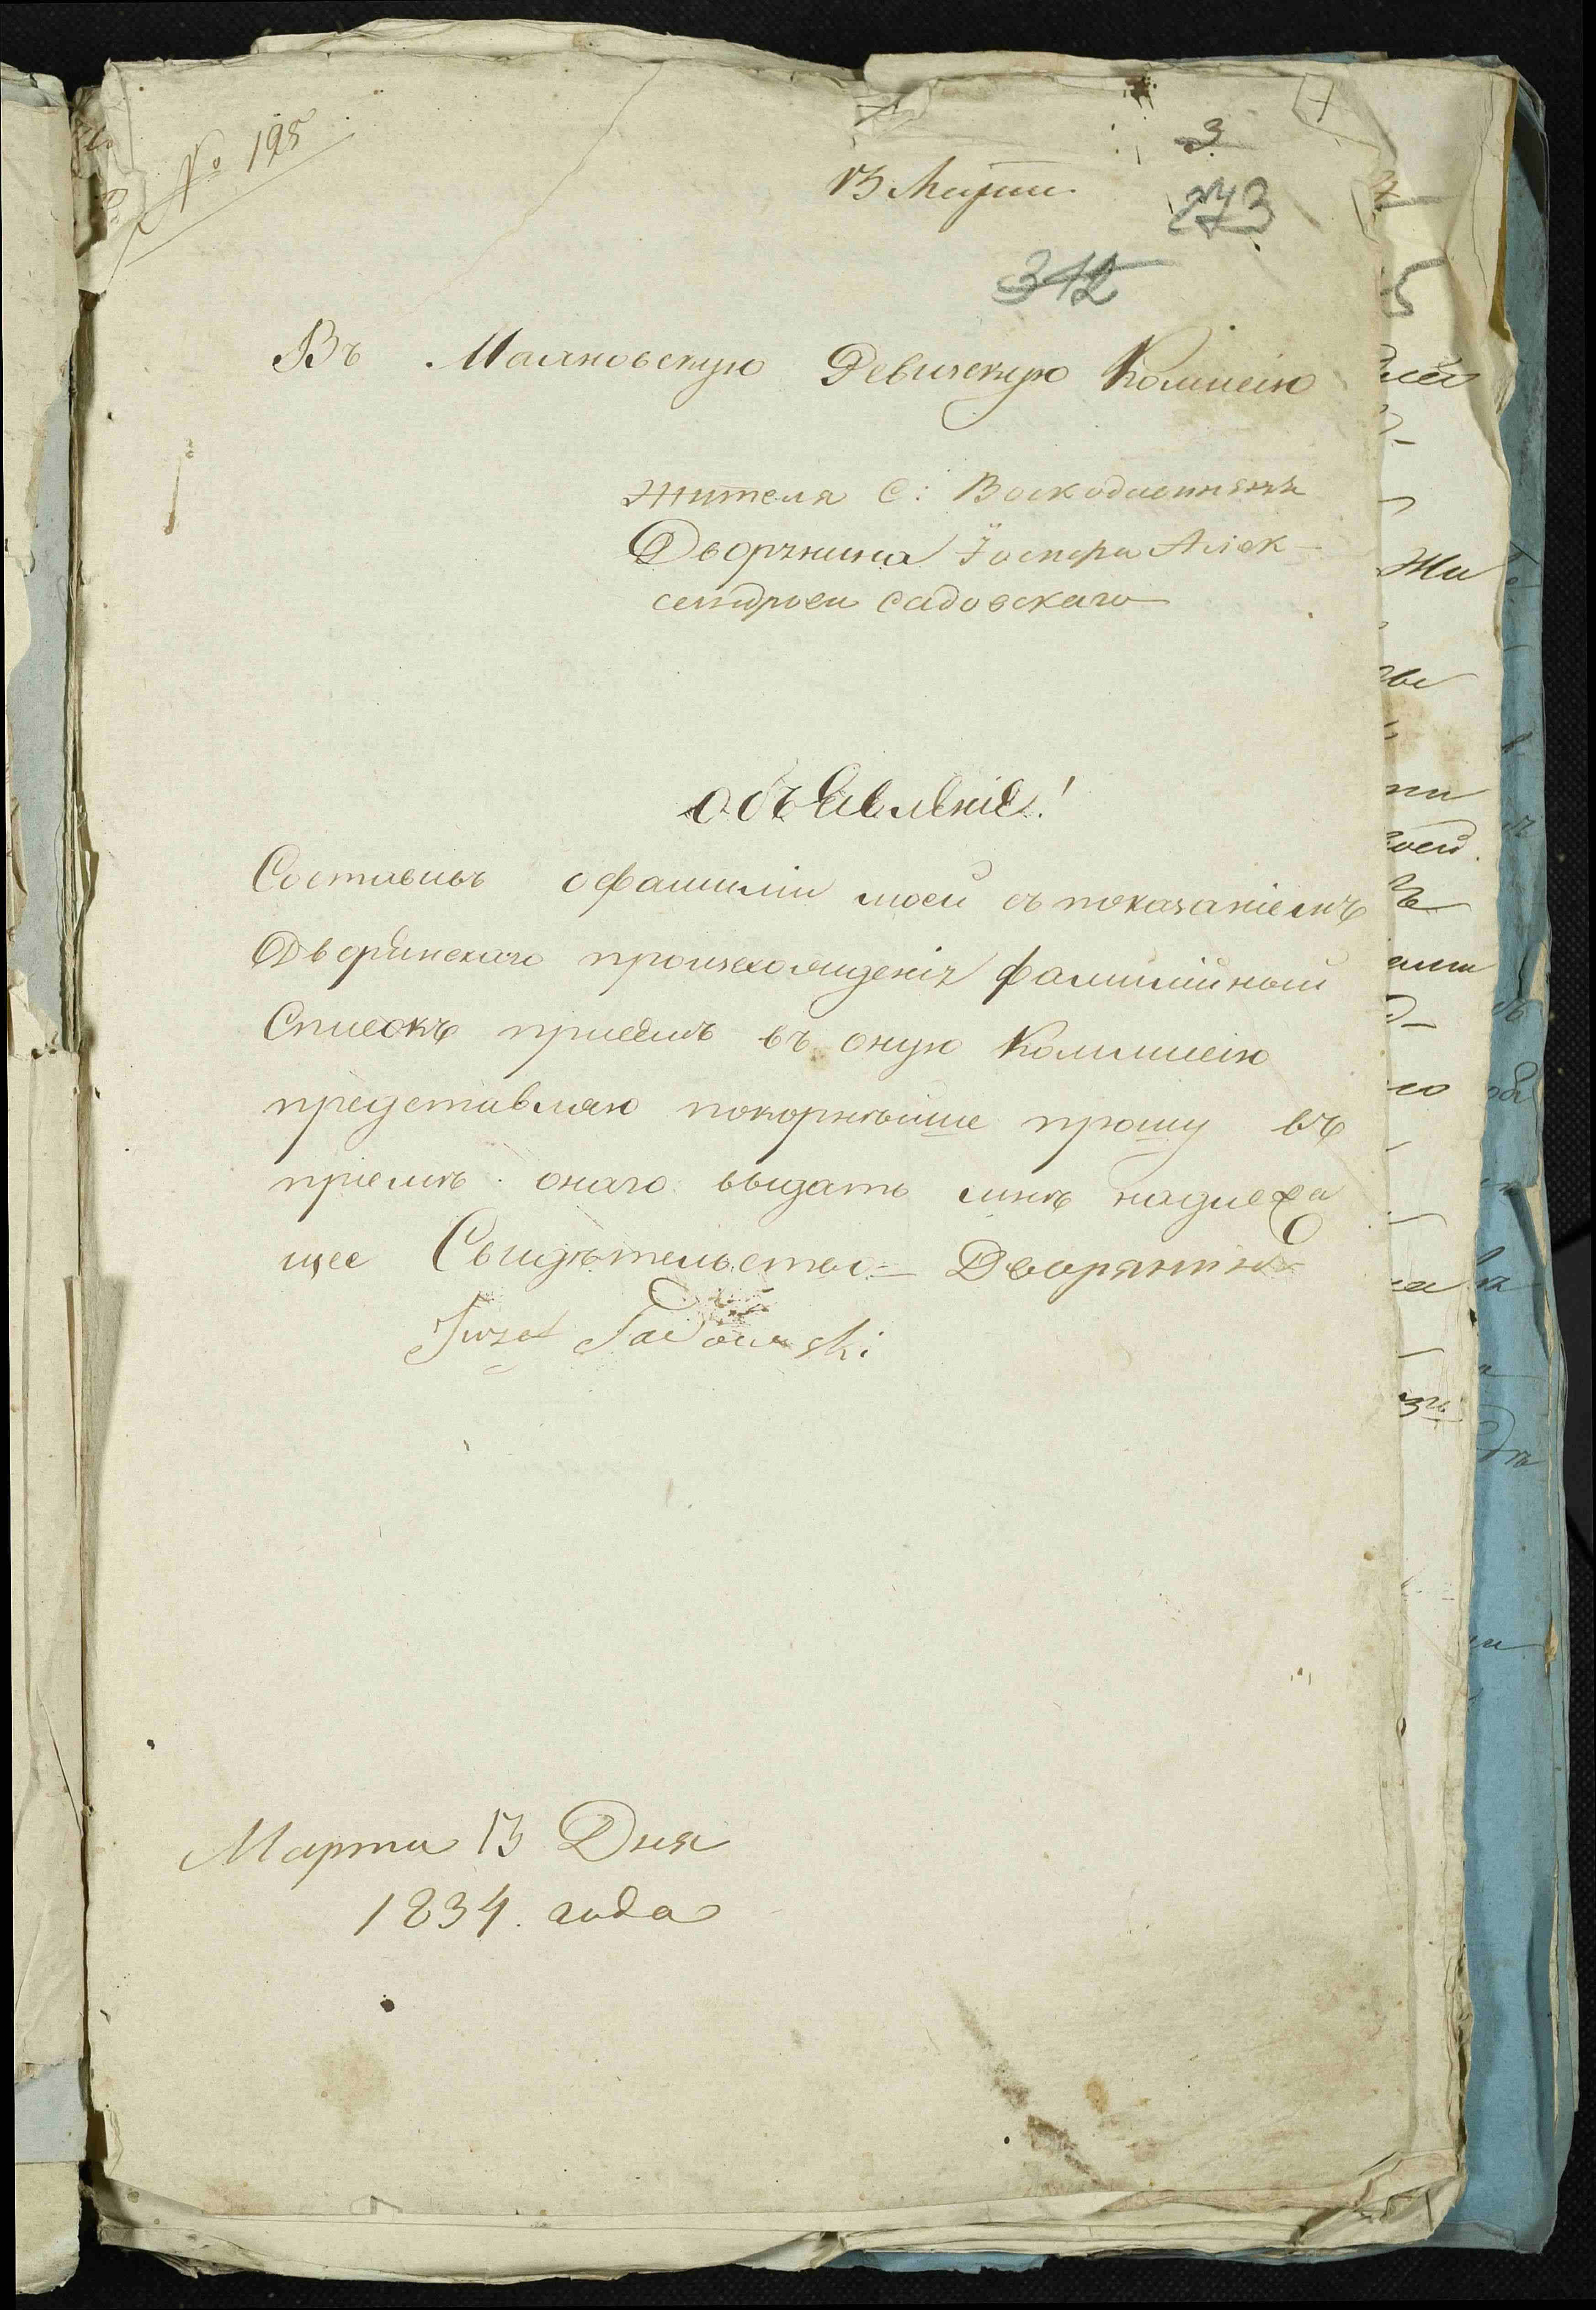 № 195
13 Марта
3
273
312
Въ Маяновскую Ревизскую Комисію
жителя С:
Дворянина Іосифа Алек-
сандрова Садовскаго
Объявленіе!
Составивъ о фамиліи моей съ показаніемъ
Дворянскаго произхожденія фамилійный
Списокъ при семъ въ оную Коммисію
представляю покорнѣйше прошу въ
пріемѣ онаго выдать мнѣ надлежа
щее Свидѣтельство= Дворянинъ
Juzef Sadowski
Марта 13 Дня
1834. года